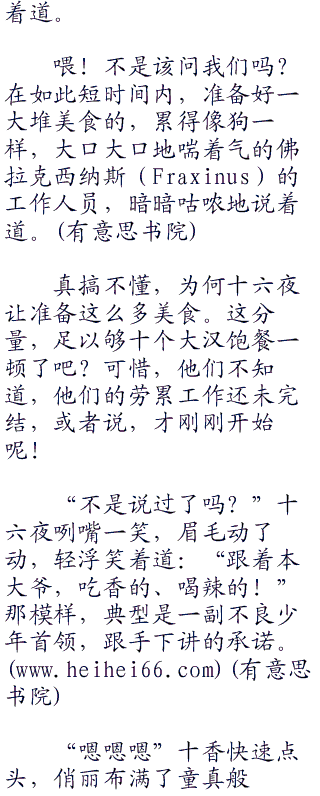 着道。
喂！不是该问我们吗？
在如此短时间内，准备好一
大堆美食的，累得像狗一
样，大口大口地喘着气的佛
拉克西纳斯（Fraxinus）的
工作人员，暗暗咕哝地说着
道。(有意思书院)
真搞不懂，为何十六夜
让准备这么多美食。这分
量，足以够十个大汉饱餐一
顿了吧？可惜，他们不知
道，他们的劳累工作还未完
结，或者说，才刚刚开始
呢！
“不是说过了吗？”十
六夜咧嘴一笑，眉毛动了
动，轻浮笑着道：“跟着本
大爷，吃香的、喝辣的！”
那模样，典型是一副不良少
年首领，跟手下讲的承诺。
(www.heihei66.com)(有意思
书院)
“嗯嗯嗯”十香快速点
头，俏丽布满了童真般